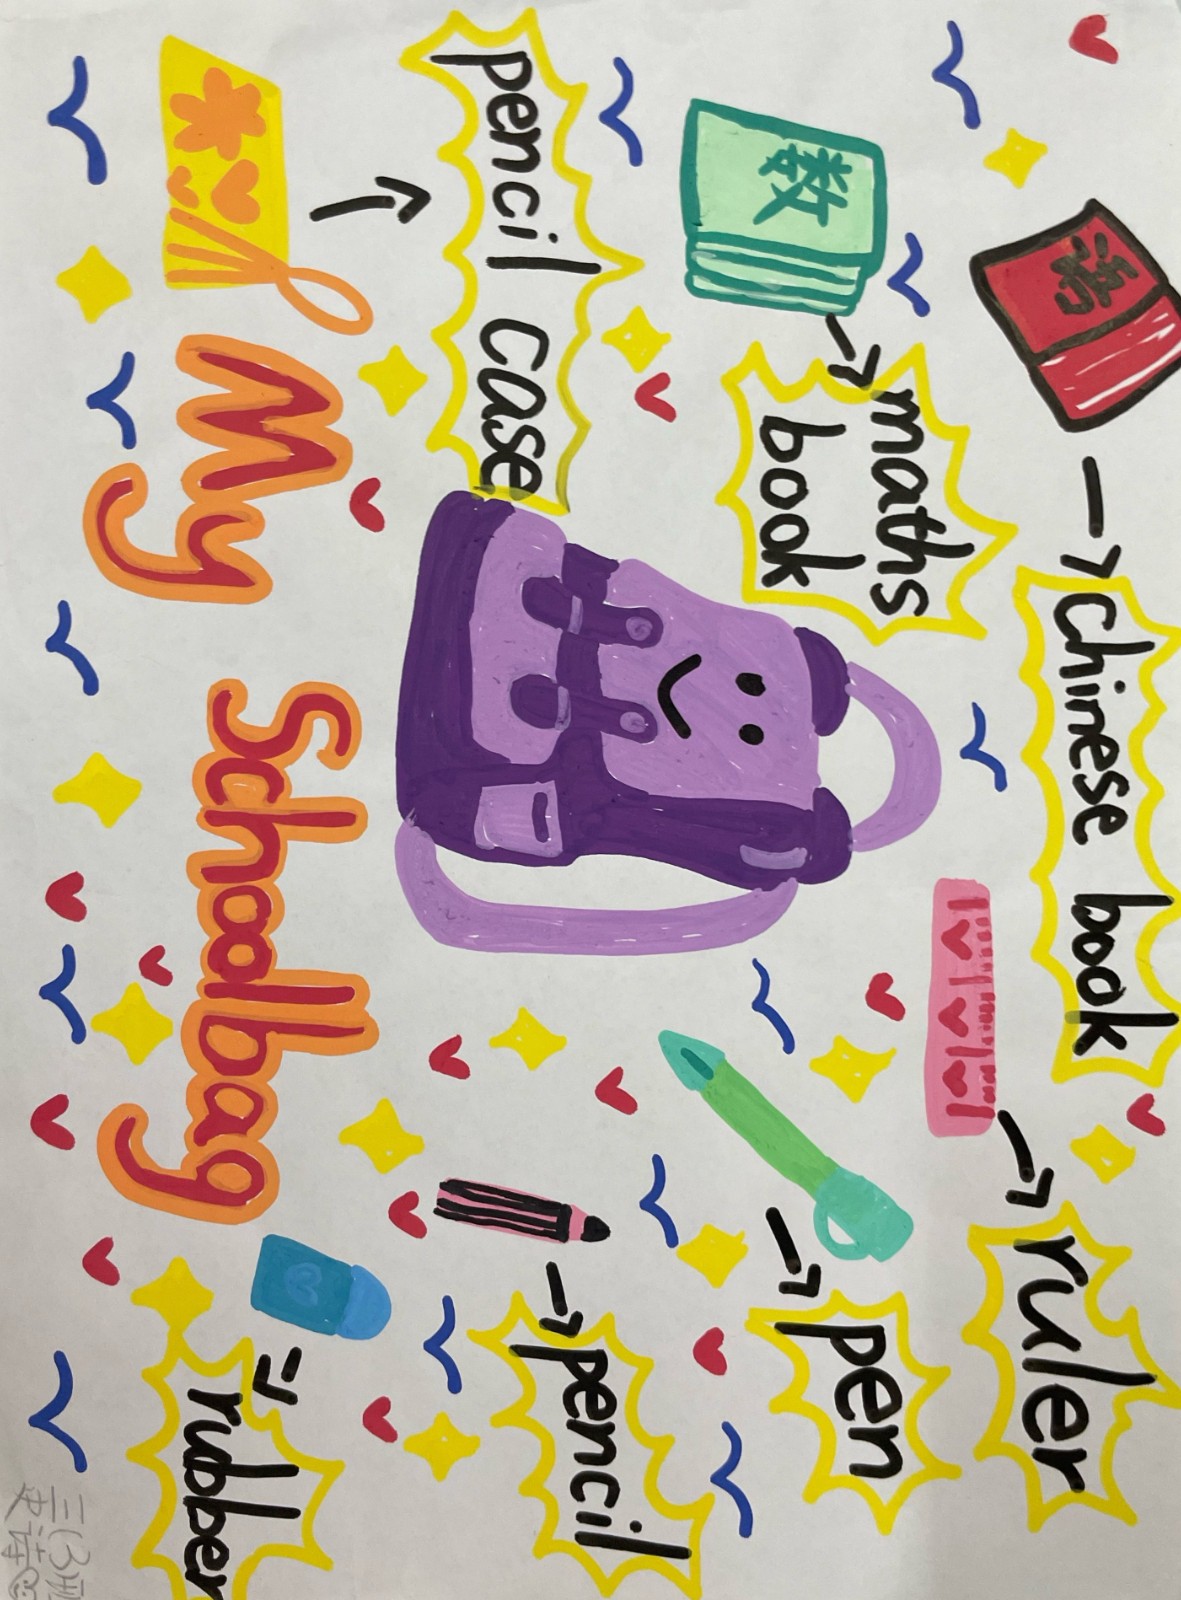 语
chinese book
ruler
数
maths
book
pen
pencil case
pencil
My Schoolbag
rubber
三(3)班